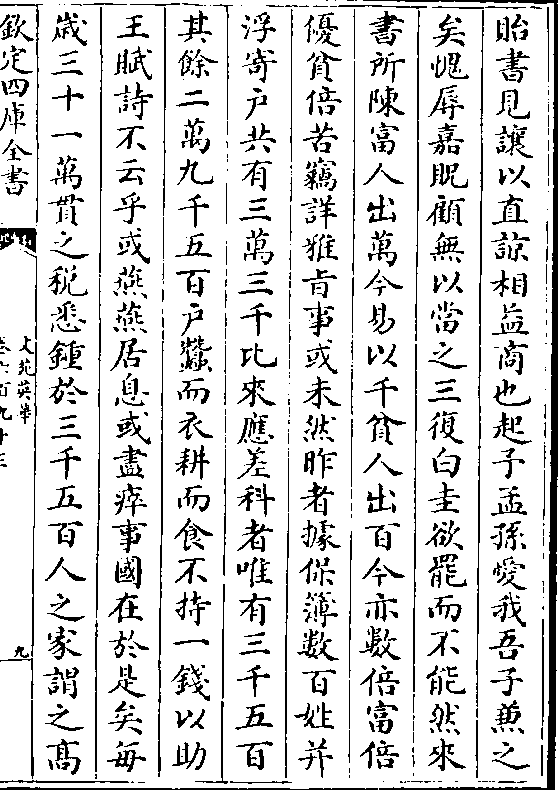 貽書見讓以直諒相益商也起予孟孫愛我吾子兼之
矣愧辱嘉貺顧無以當之三復白圭欲罷而不能然來
書所陳富人出萬今易以千貧人出百今亦數倍富倍
優貧倍苦竊詳雅㫖事或未然昨者據保簿數百姓并
浮寄户共有三萬三千比來應差科者唯有三千五百
其餘二萬九千五百户蠶而衣耕而食不持一錢以助
王賦詩不云乎或燕燕居息或盡瘁事國在於是矣每
嵗三十一萬貫之税悉鍾於三千五百人之家謂之髙
欽定四庫全書
文苑英華
卷六百九十三
九